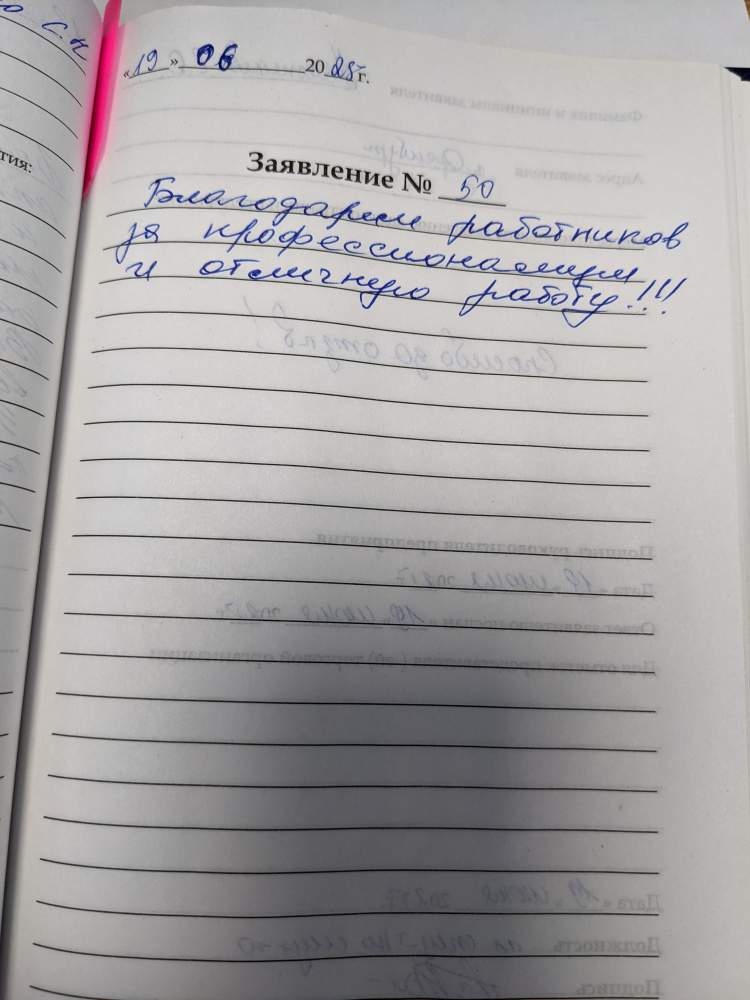 о С.К
тия:
«19» 06 2025 г.
Заявление № 50
Благодарим работников
за профессионализм
и отличную работу!!!